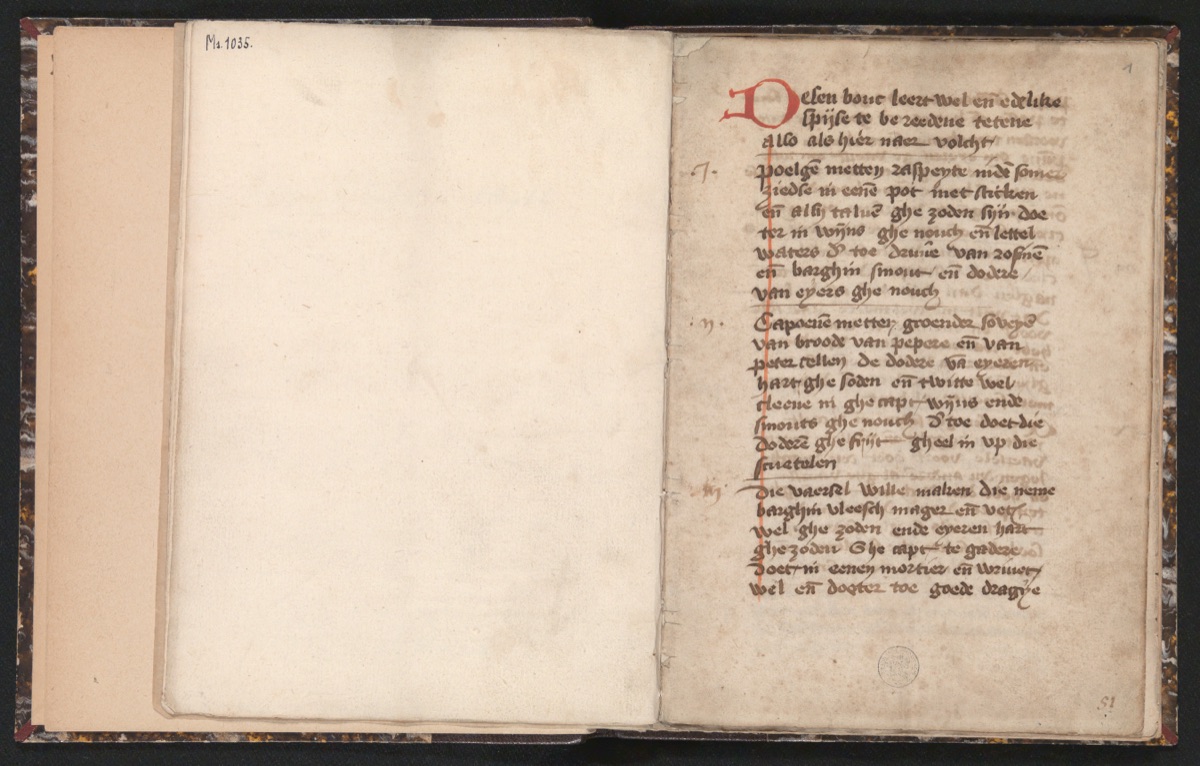 Ms. 1035.
1
Desen bouc leert wel en̄ edelike
spijse te be reedene tetene
also als hier naer volcht
.J. poelgē metten raspeyte nidē somer
ziedse in eenē pot met sticken
en̄ alsy taluē ghe zoden sijn doe
ter in wijns ghe nouch en̄ lettel
waters toe druuē van rosinē
en̄ barghin smout en̄ dodere
van eyers ghe nouch
.ij. Capoenē metter groender soveyē
van broode van pepere en̄ van
peter cellen de dodere vā eyeren
hart ghe soden en̄ twitte wel
cleene in ghe capt wijns ende
smouts ghe nouch toe doet die
doderē ghe sijt gheel in up die
scutelen
.iij. Die vaersel wille maken die neme
barghin vleesch mager en̄ vet
wel ghe zoden ende eyeren hart
ghe zoden Ghe capt te gadere
doet in eenen mortier en̄ wrivet
wel en̄ doeter toe goede dragye
51